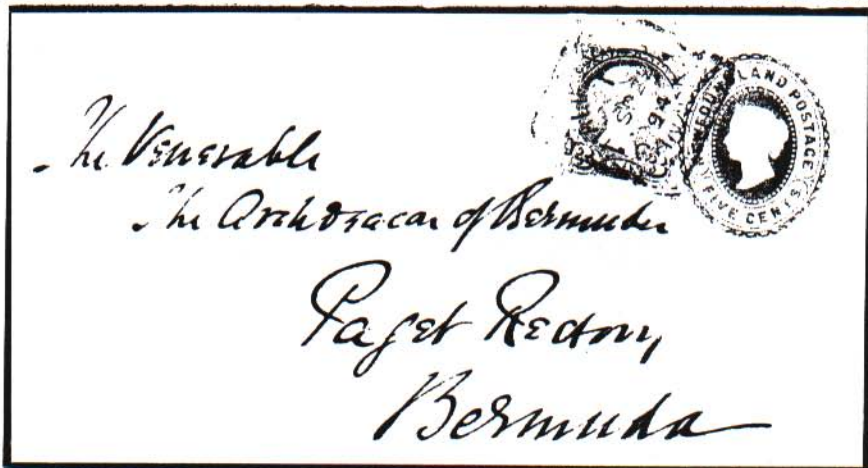 The Venerable
The Archdeacon of Bermuda
Paget Rectory
Bermuda
94
NEWFOUNDLAND POSTAGE
FIVE CENTS